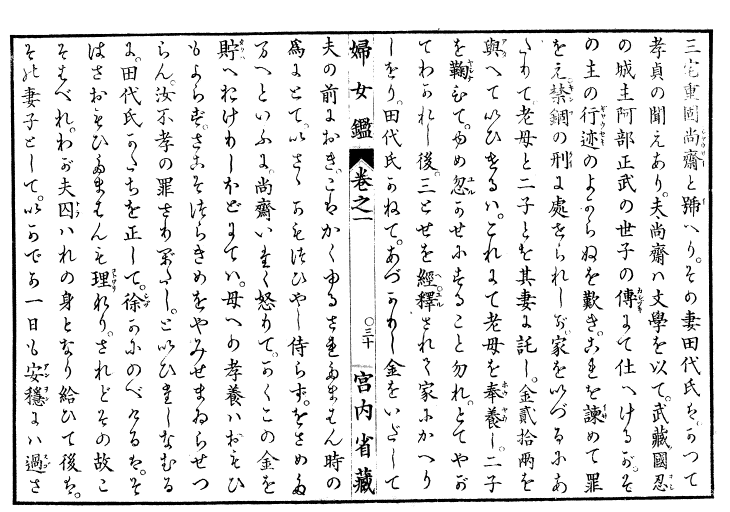 三宅重固尚齋と號へり。その妻田代氏は。かつて
孝貞の聞えあり。夫尚齋ハ文學を以て。武藏國忍
の城主阿部正武の世子の傳にて仕へけるが。そ
の主の行迹のよからぬを歎き。これを諫めて罪
をえ禁錮の刑に處せられしが。家をいづるにあ
たりて。老母と二子とを其妻に託し。金貳拾兩を
與へていひけるハ。これにて老母を奉養し。二子
を鞠みて。ゆめ忽かせにすること勿れ。とてやが
てわかれし後。三とせを經釋されて家にかへり
しをり。田代氏かねて。あづかりし金をいだして
婦女鑑 卷之一 ○三十 宮内省藏
夫の前におき。こハかくゆるされたまはん時の
爲にとて。いさゝかもつひやし侍らず。をさめた
まへといふに。尚齋いたく怒りて。かくこの金を
貯へおけりしほどにてハ。母への孝養ハおもひ
もよらず。さこそつらきめをやみせまゐらせつ
らん。汝不孝の罪さりがたし。といひはしたなむる
に。田代氏かたちを正して。徐かにのべけるは。そ
はさおもひたまはんも理れり。されどその故こ
そはべれ。わが夫囚ハれの身となり給ひて後は。
その妻子として。いかでか一日も安穩にハ過さ